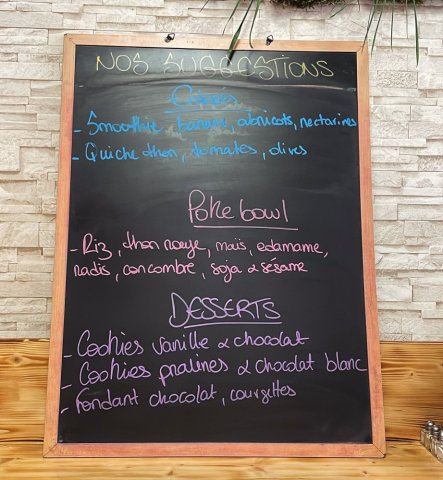 NOS SUGGESTIONS
- Smoothie banane, abricots, nectarines
- Quiche thon, tomates, olives
Poke bowl
- Riz, thon rouge, maïs, edamame,
radis, concombre, soja & sésame
DESSERTS
- Cookies vanille & chocolat
- Cookies pralines & chocolat blanc
- Fondant chocolat, courgettes